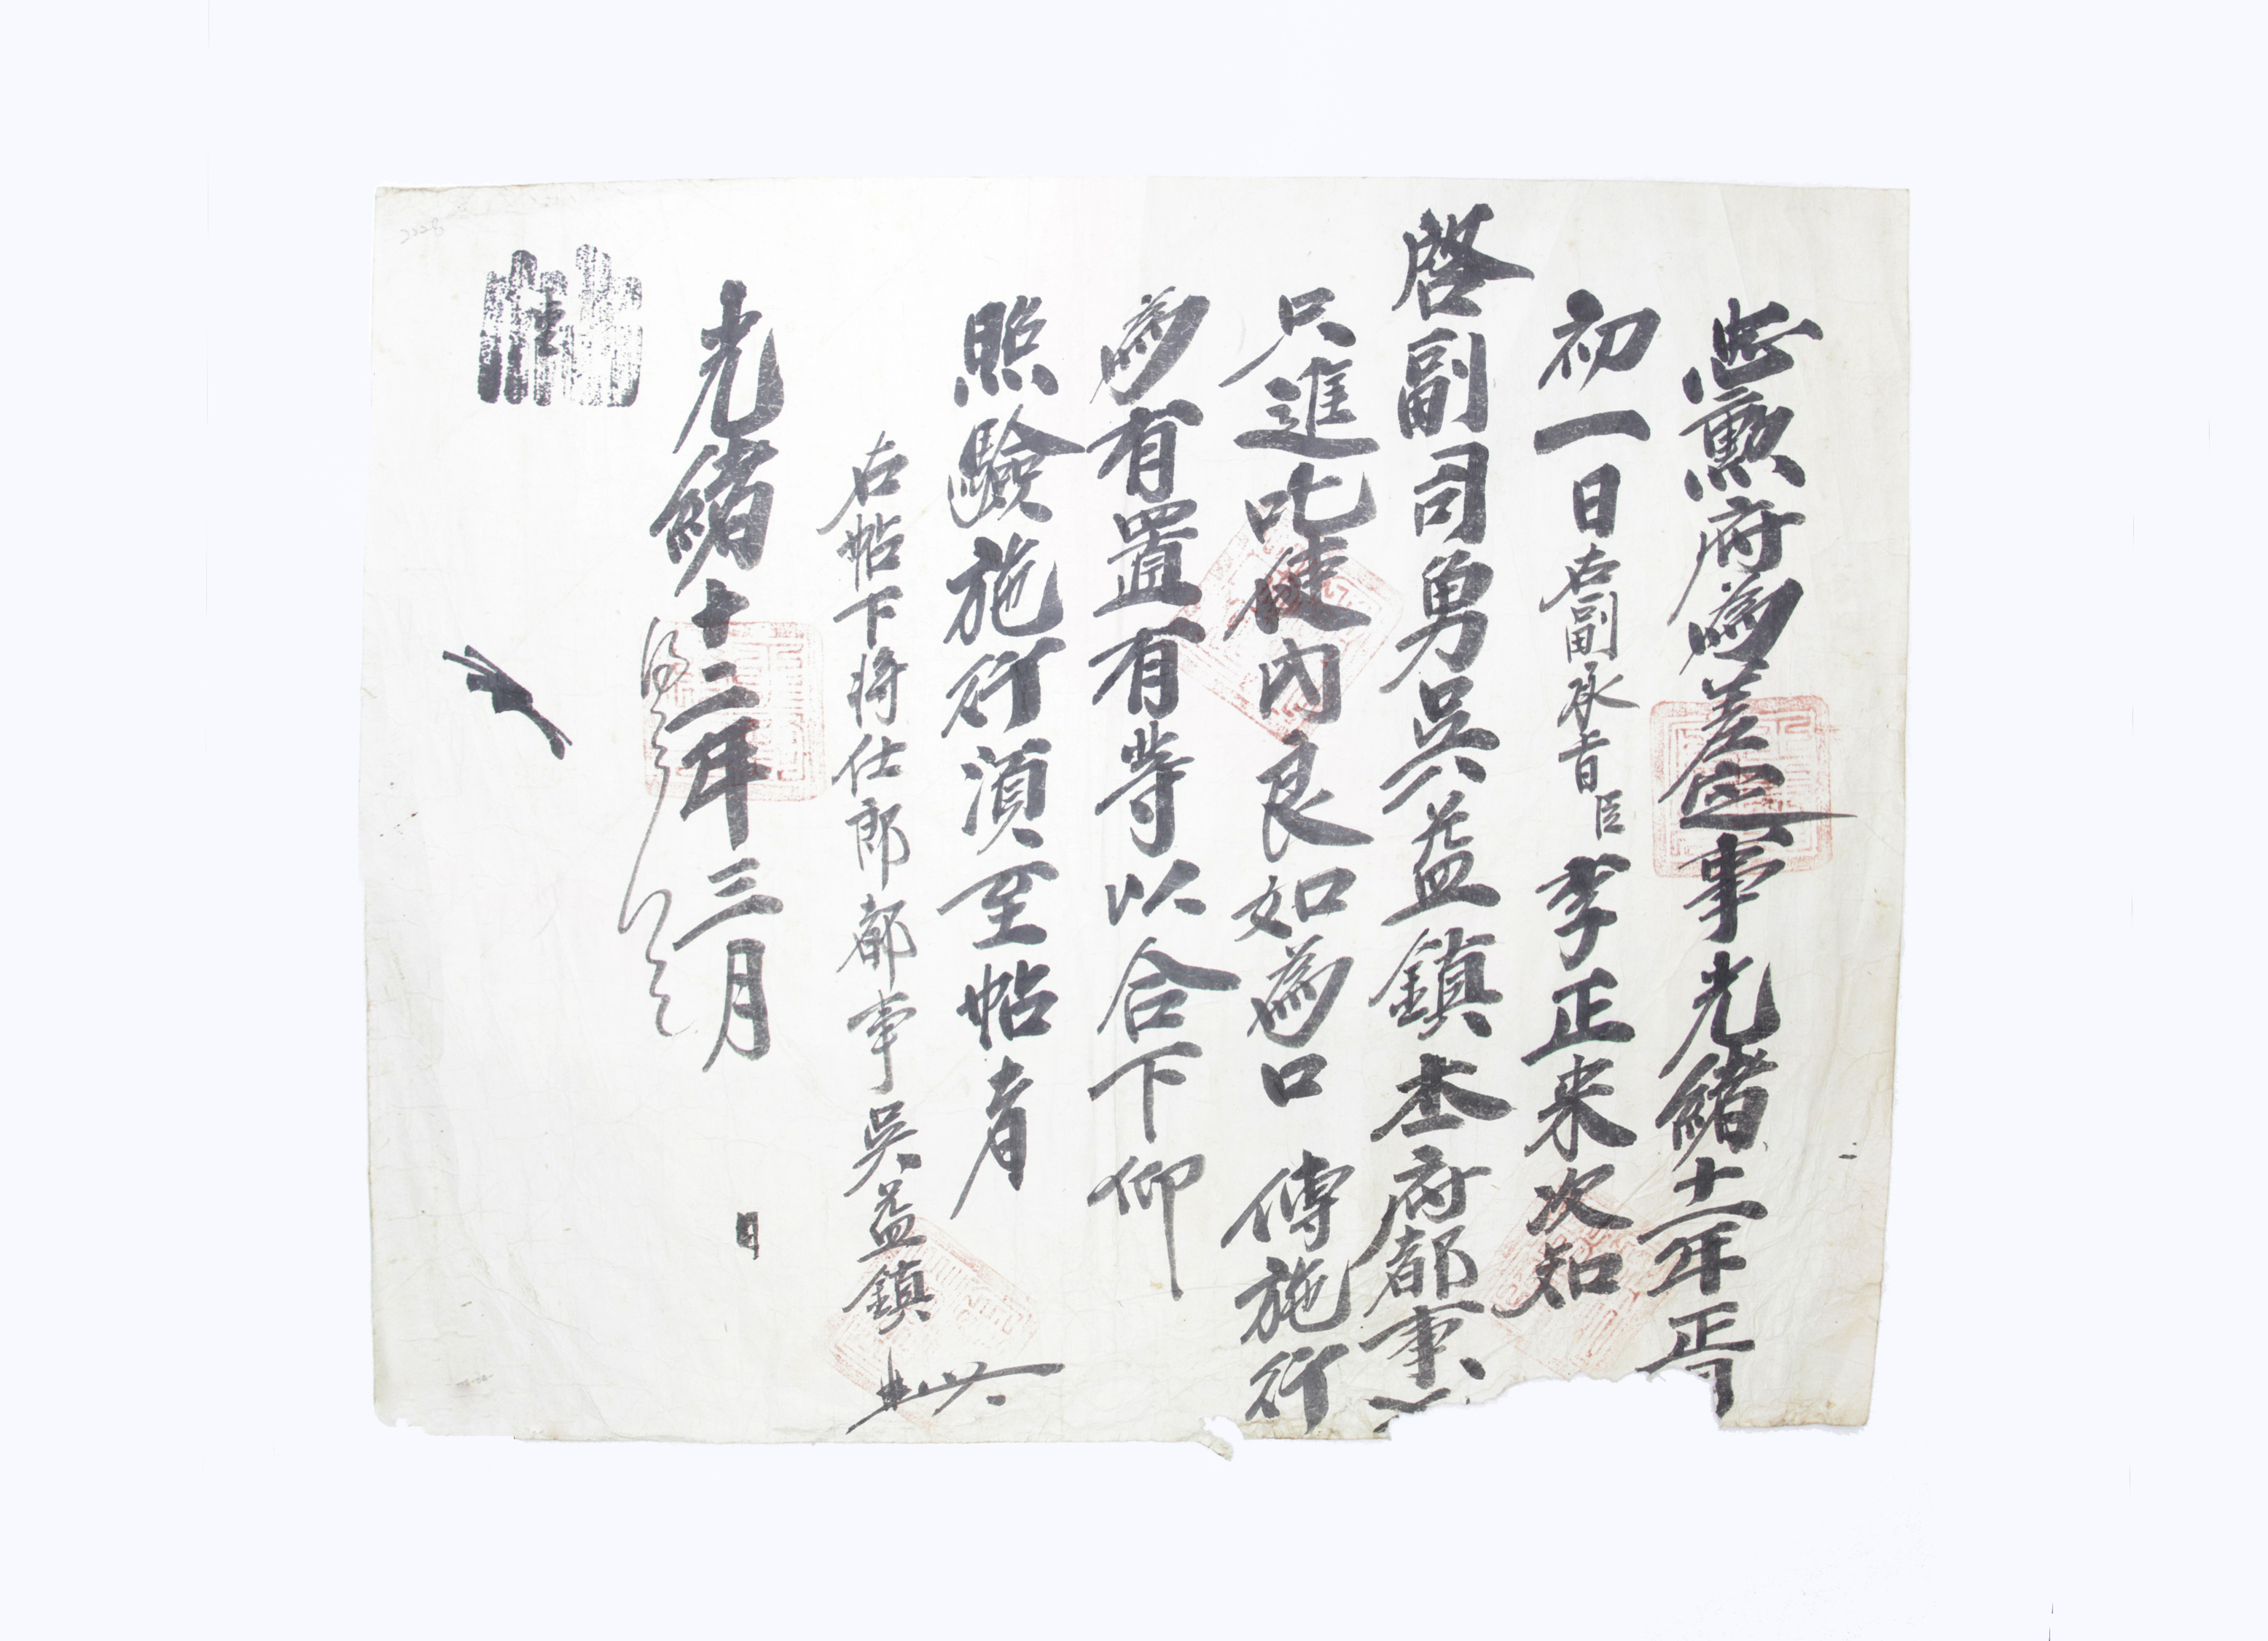 忠勲府為差定事光緒十二年正月
初一日右副承旨臣李正来次知
啓副司勇吳益鎮本府都事
只進叱使內良如為口傳施行
為有置有等以合下仰
照驗施行須至帖者
右帖下將仕郎都事吳益鎮
光緒十二年三月 日
2228